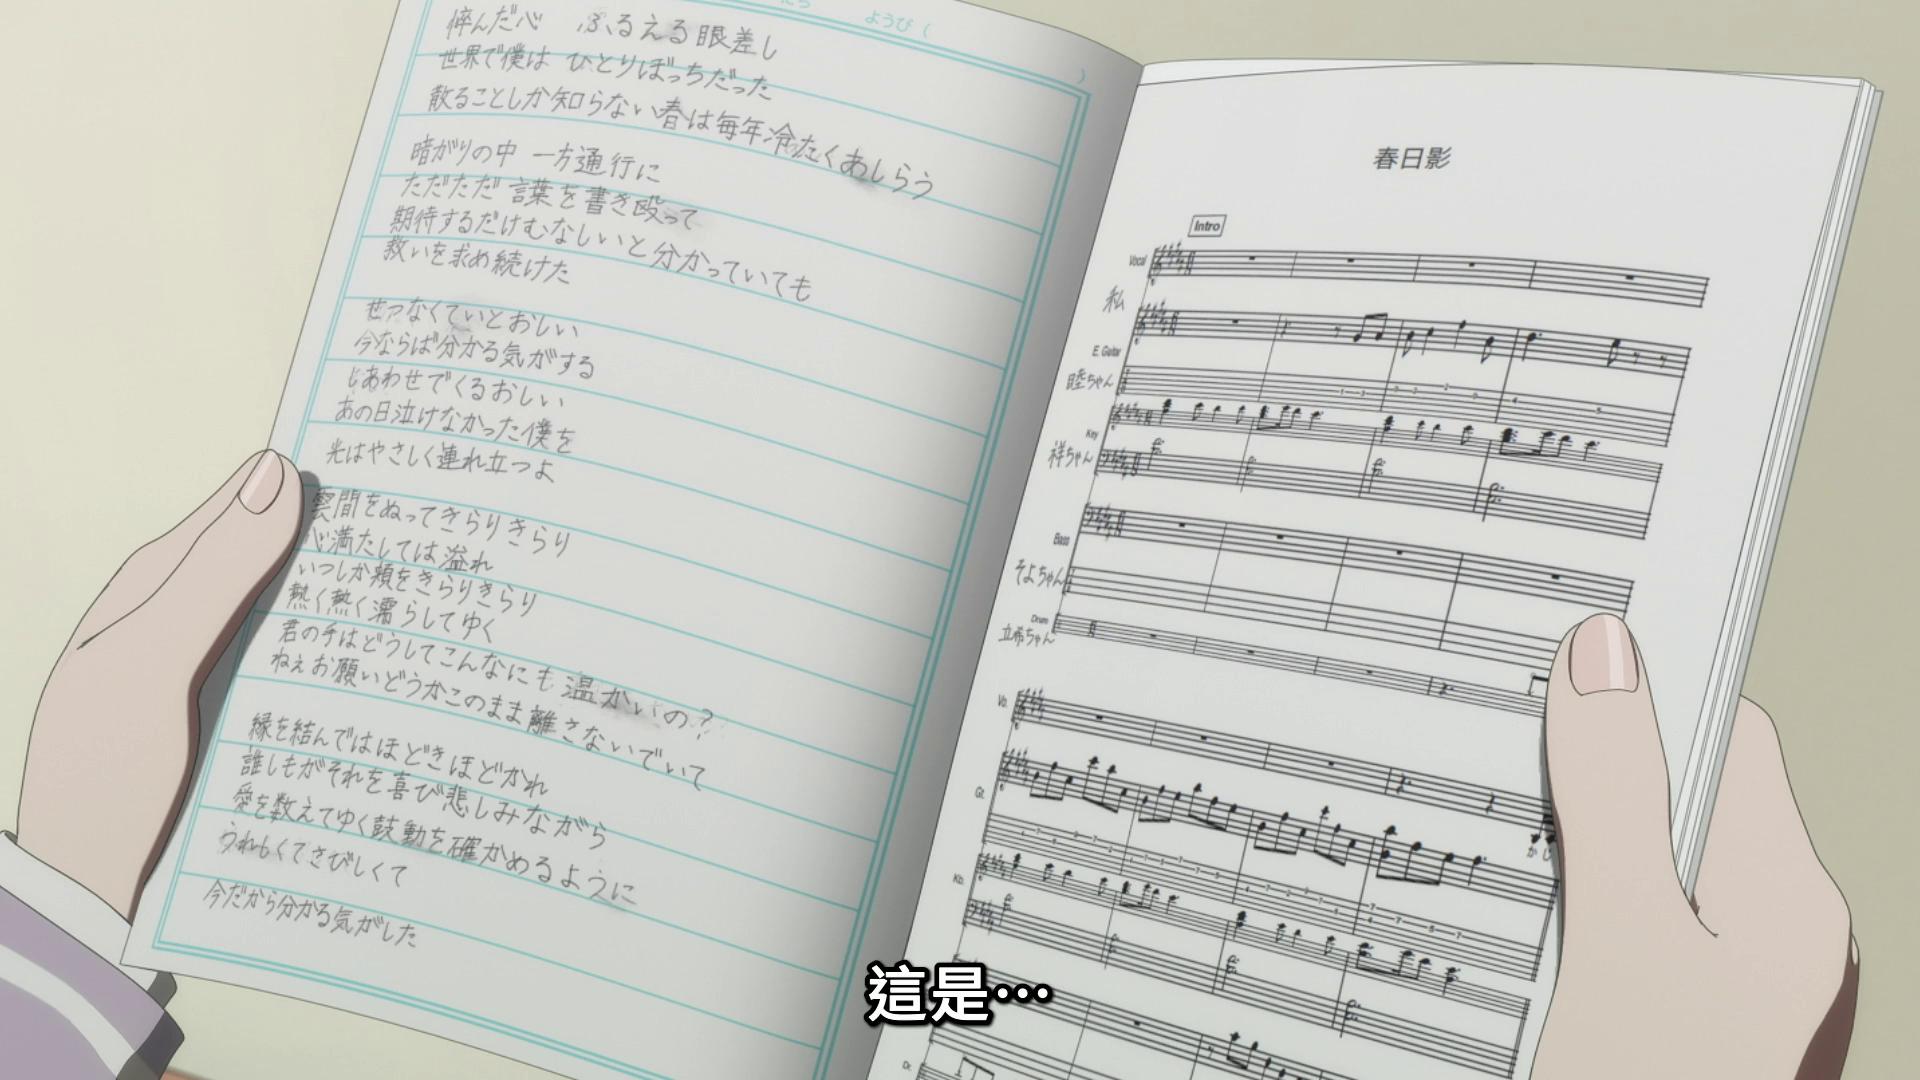 ようび（　　）
悴んだ心　ふるえる眼差し
世界で僕は ひとりぼっちだった
散ることしか知らない春は毎年冷たくあしらう
暗がりの中 一方通行に
ただただ 言葉を書き殴って
期待するだけむなしいと分かっていても
救いを求め続けた
せつなくていとおしい
今ならば分かる気がする
しあわせでくるおしい
あの日泣けなかった僕を
光はやさしく連れ立つよ
雲間をぬってきらりきらり
心満たしては溢れ
いつしか頬をきらりきらり
熱く熱く濡らしてゆく
君の手はどうしてこんなにも温かいの？
ねぇお願いどうかこのまま離さないでいて
縁を結んではほどきほどかれ
誰しもがそれを喜び悲しみながら
愛を数えてゆく鼓動を確かめるように
うれしくてさびしくて
今だから分かる気がした
春日影
Intro
Vocal
私
E. Guitar
睦ちゃん
Key
祥ちゃん
Bass
そよちゃん
Drum
立希ちゃん
Vo.
Gt.
か じ
Kb.
Dr.
這是…